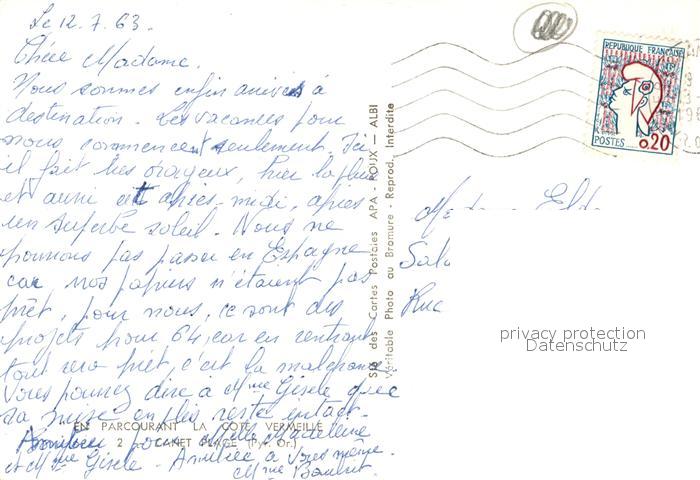 Le 12.7.63.
Chère Madame.
Nous sommes enfin arrivés à
destination. Les vacances pour
nous commencent seulement. Ici
il fait très orageux, hier la pluie
et aussi et après-midi, après
un superbe soleil. Nous ne
pouvons pas passer en Espagne
car nos papiers n'étaient pas
prêt, pour nous, ce sont des
projets pour 64, car en rentrant
tout sera prêt, c'est la malchance.
Vous pourrez dire à Mme Gisele que
sa mise en plis reste intact.
EN PARCOURANT LA COTE VERMEILLE
Amitiés pour Melle Madeleine
2 - CANET PLAGE (Pyr. Or.)
et Mme Gisele. Amitiés à vous même.
Mme
Sté des Cartes Postales APA - ROUX — ALBI
Véritable Photo au Bromure - Reprod. Interdite
REPUBLIQUE FRANÇAISE
POSTES 0,20
Rue
privacy protection
Datenschutz